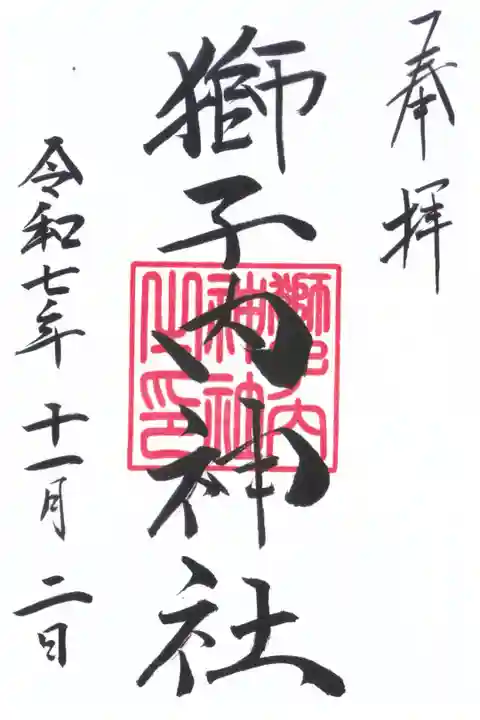 奉拝
獅子内神社
獅子内
神社
之印
令和七年十一月二日